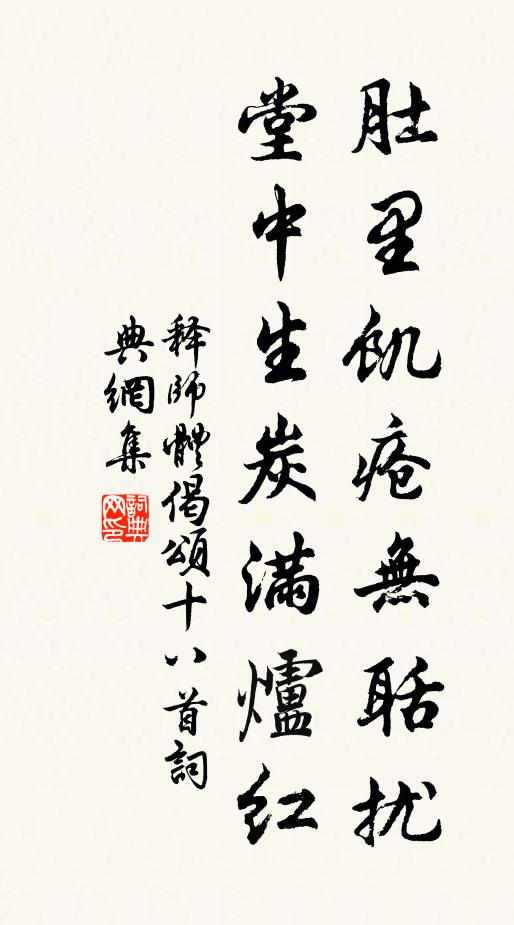 肚里飢瘡無聒扰
堂中生炭满爐红
释師體偈頌十八首詞
典網集
詞典网印